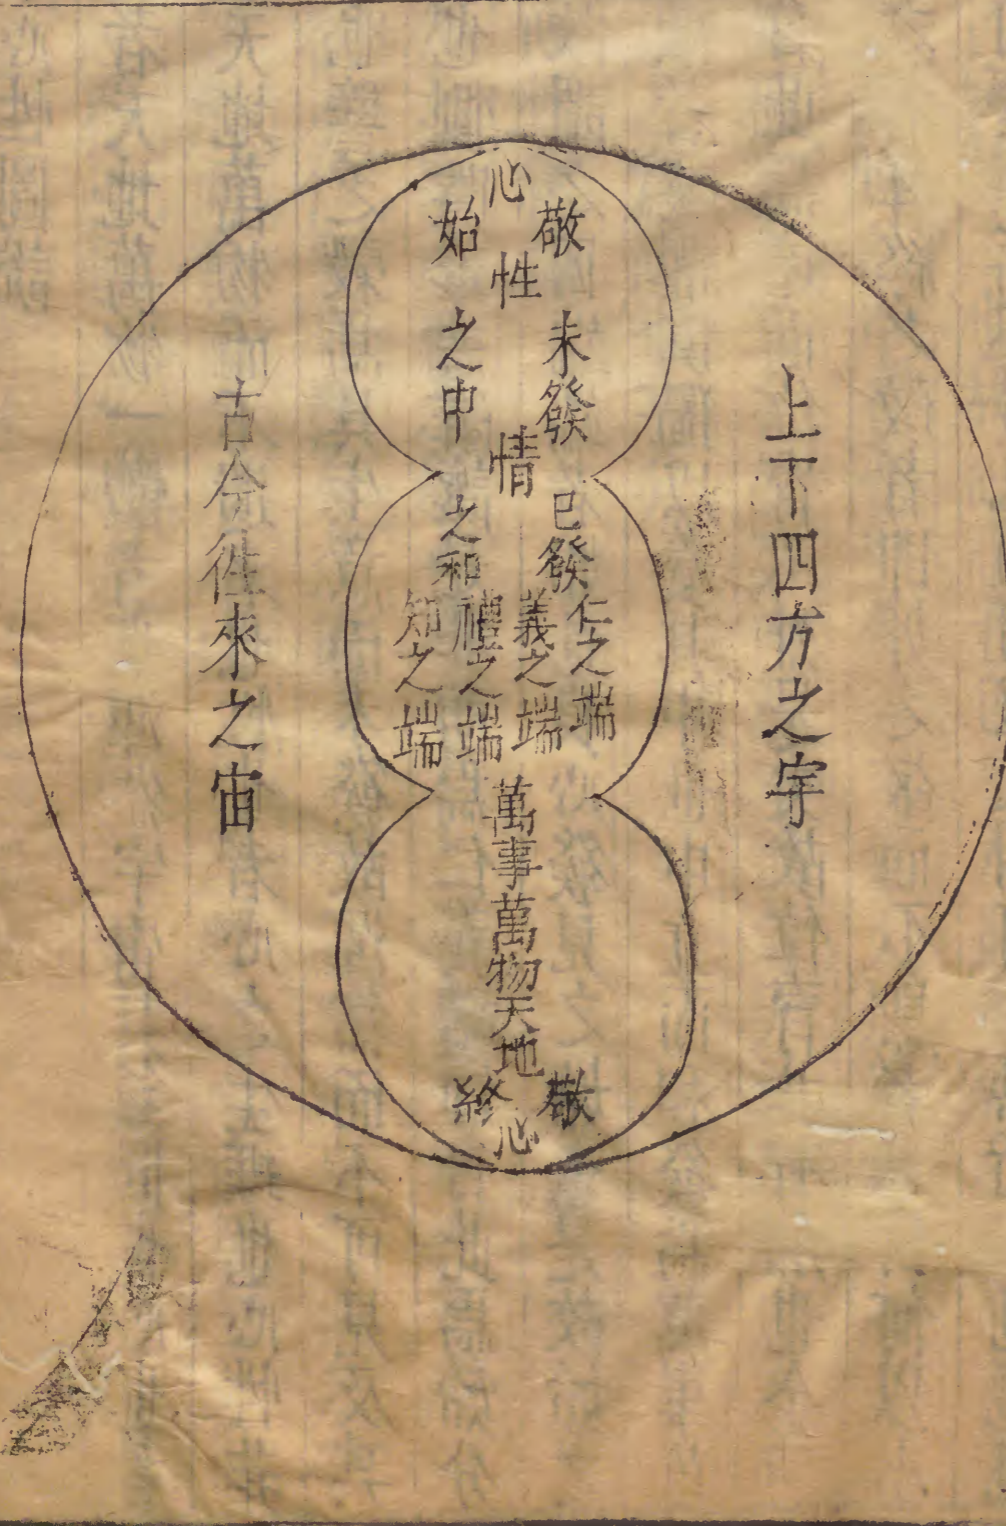 上下四方之宇
心
敬始
性
未發之中
情
已發之和
仁之端
義之端
禮之端
知之端
萬事萬物天地
敬終
心
古今徃來之宙